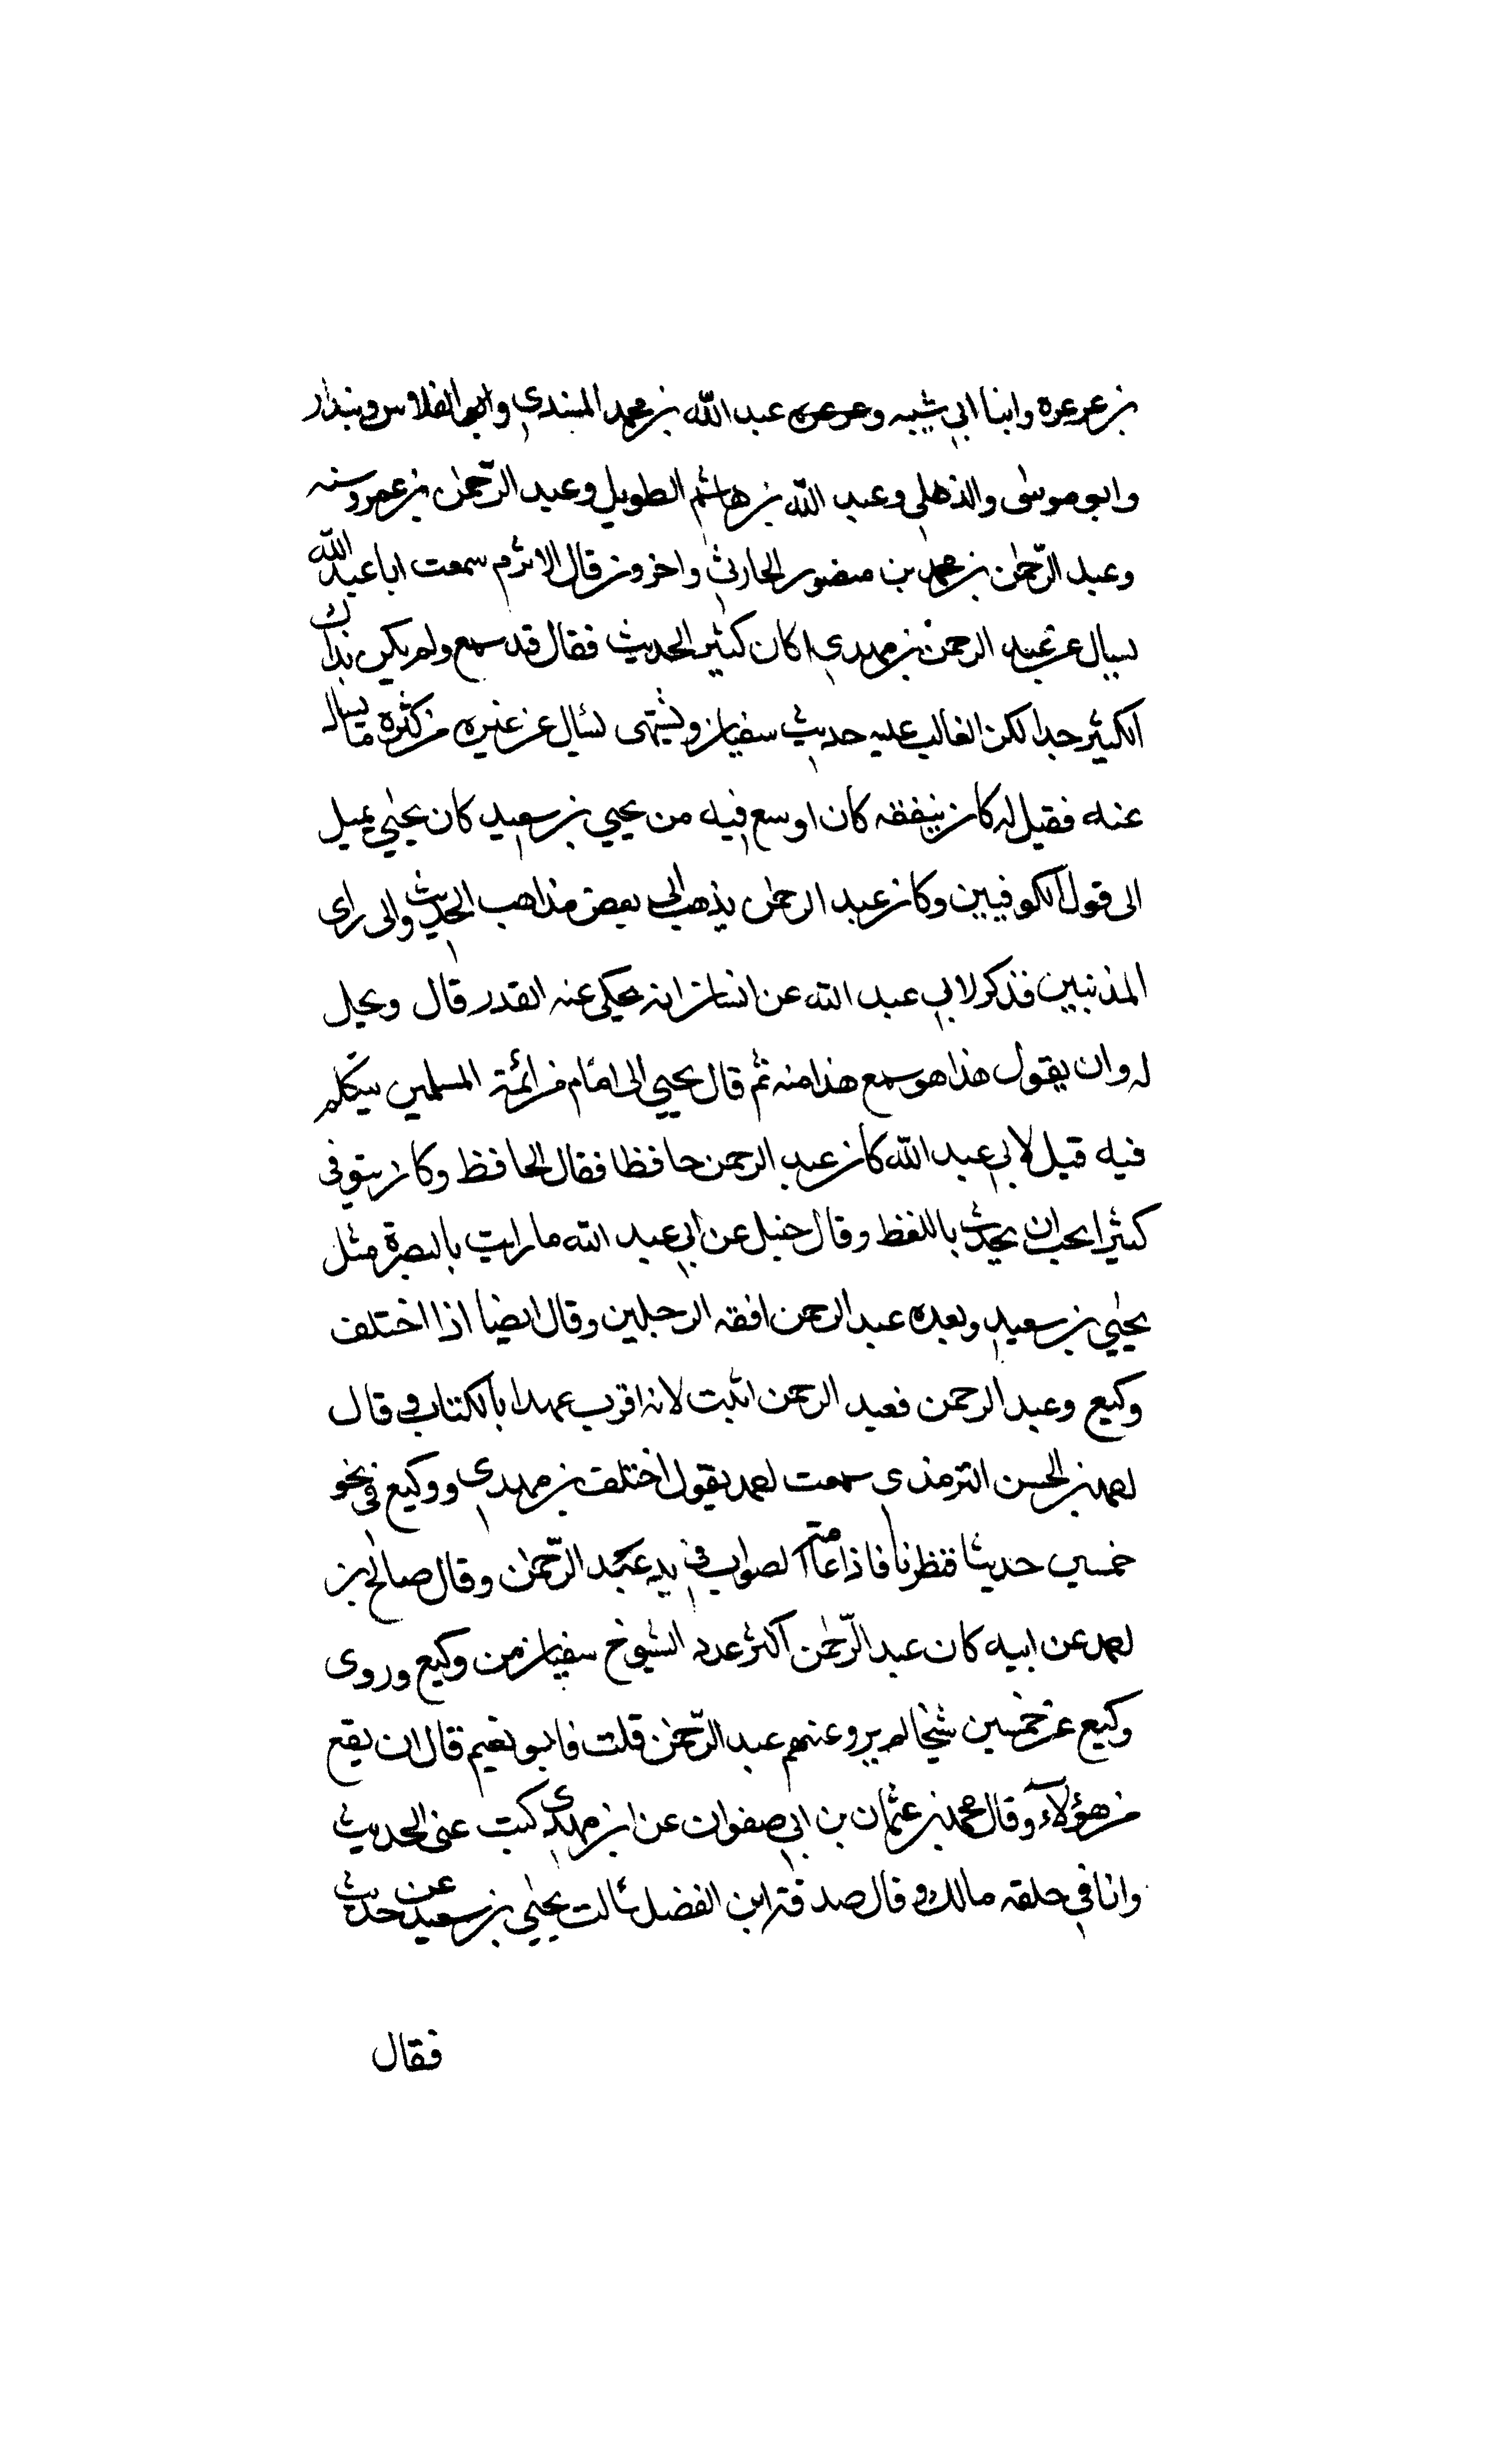 بن عرعره وابنا ابي شيبه وعرعره عبد الله بن محمد المسندي والفلاس وبندار
وابو موسى والذهلي وعبد الله بن هاشم الطويل وعبد الرحمن بن عمر وسته
وعبد الرحمن بن محمد بن منصور الحارثي واخرون قال الاثرم سمعت ابا عبد الله
يسال عن عبد الرحمن بن مهدي اكان كثير الحديث فقال قد سمع ولم يكن بذاك
الكثير جدا لكن الغالب عليه حديث سفيان ويشتهى يسئال عن غيره من كثرة ما يساله
عنه فقيل له كان يتفقه كان اوسع فيه من يحيي بن سعيد كان يحيي يميل
الى قول الكوفيين وكان عبد الرحمن يذهب الى بعض مذاهب الحديث والى راى
المذنبين فذكر لابي عبد الله عن انسان انه يحكى عنه القدر قال ويحل
له وان يقول هذا هو سمع هذا منه ثم قال يحيي الى امام من ائمة المسلمين يتكلم
فيه قيل لابي عبد الله كان عبد الرحمن حافظا فقال الحافظ وكان يتوفى
كثيرا يحب ان يحدث باللفظ وقال حنبل عن ابي عبد الله ما رايت بالبصرة مثل
يحيي بن سعيد وبعده عبد الرحمن افقه الرجلين وقال ايضا اذا اختلف
وكيع وعبد الرحمن فعبد الرحمن اثبت لانه اقرب عهدا بالكتاب وقال
احمد بن الحسن الترمذى سمعت احمد يقول اختلف بن مهدي ووكيع في نحو
خمسين حديثا فنظرنا فاذا عامة الصواب في يد عبد الرحمن وقال صالح بن
احمد عن ابيه كان عبد الرحمن اكثر عدد الشيوخ سفيان من وكيع وروى
وكيع عن خمسين شيخا لم يرو عنهم عبد الرحمن قلت فابو نعيم قال ان يقع
من هؤلآء وقال محمد بن عثمان بن ابي صفوان عن ابن مهدي كتب عنى الحديث
وانا في حلقه مالك وقال صدقة ابن الفضل سئالت يحيي بن سعيد عن حديث
فقال